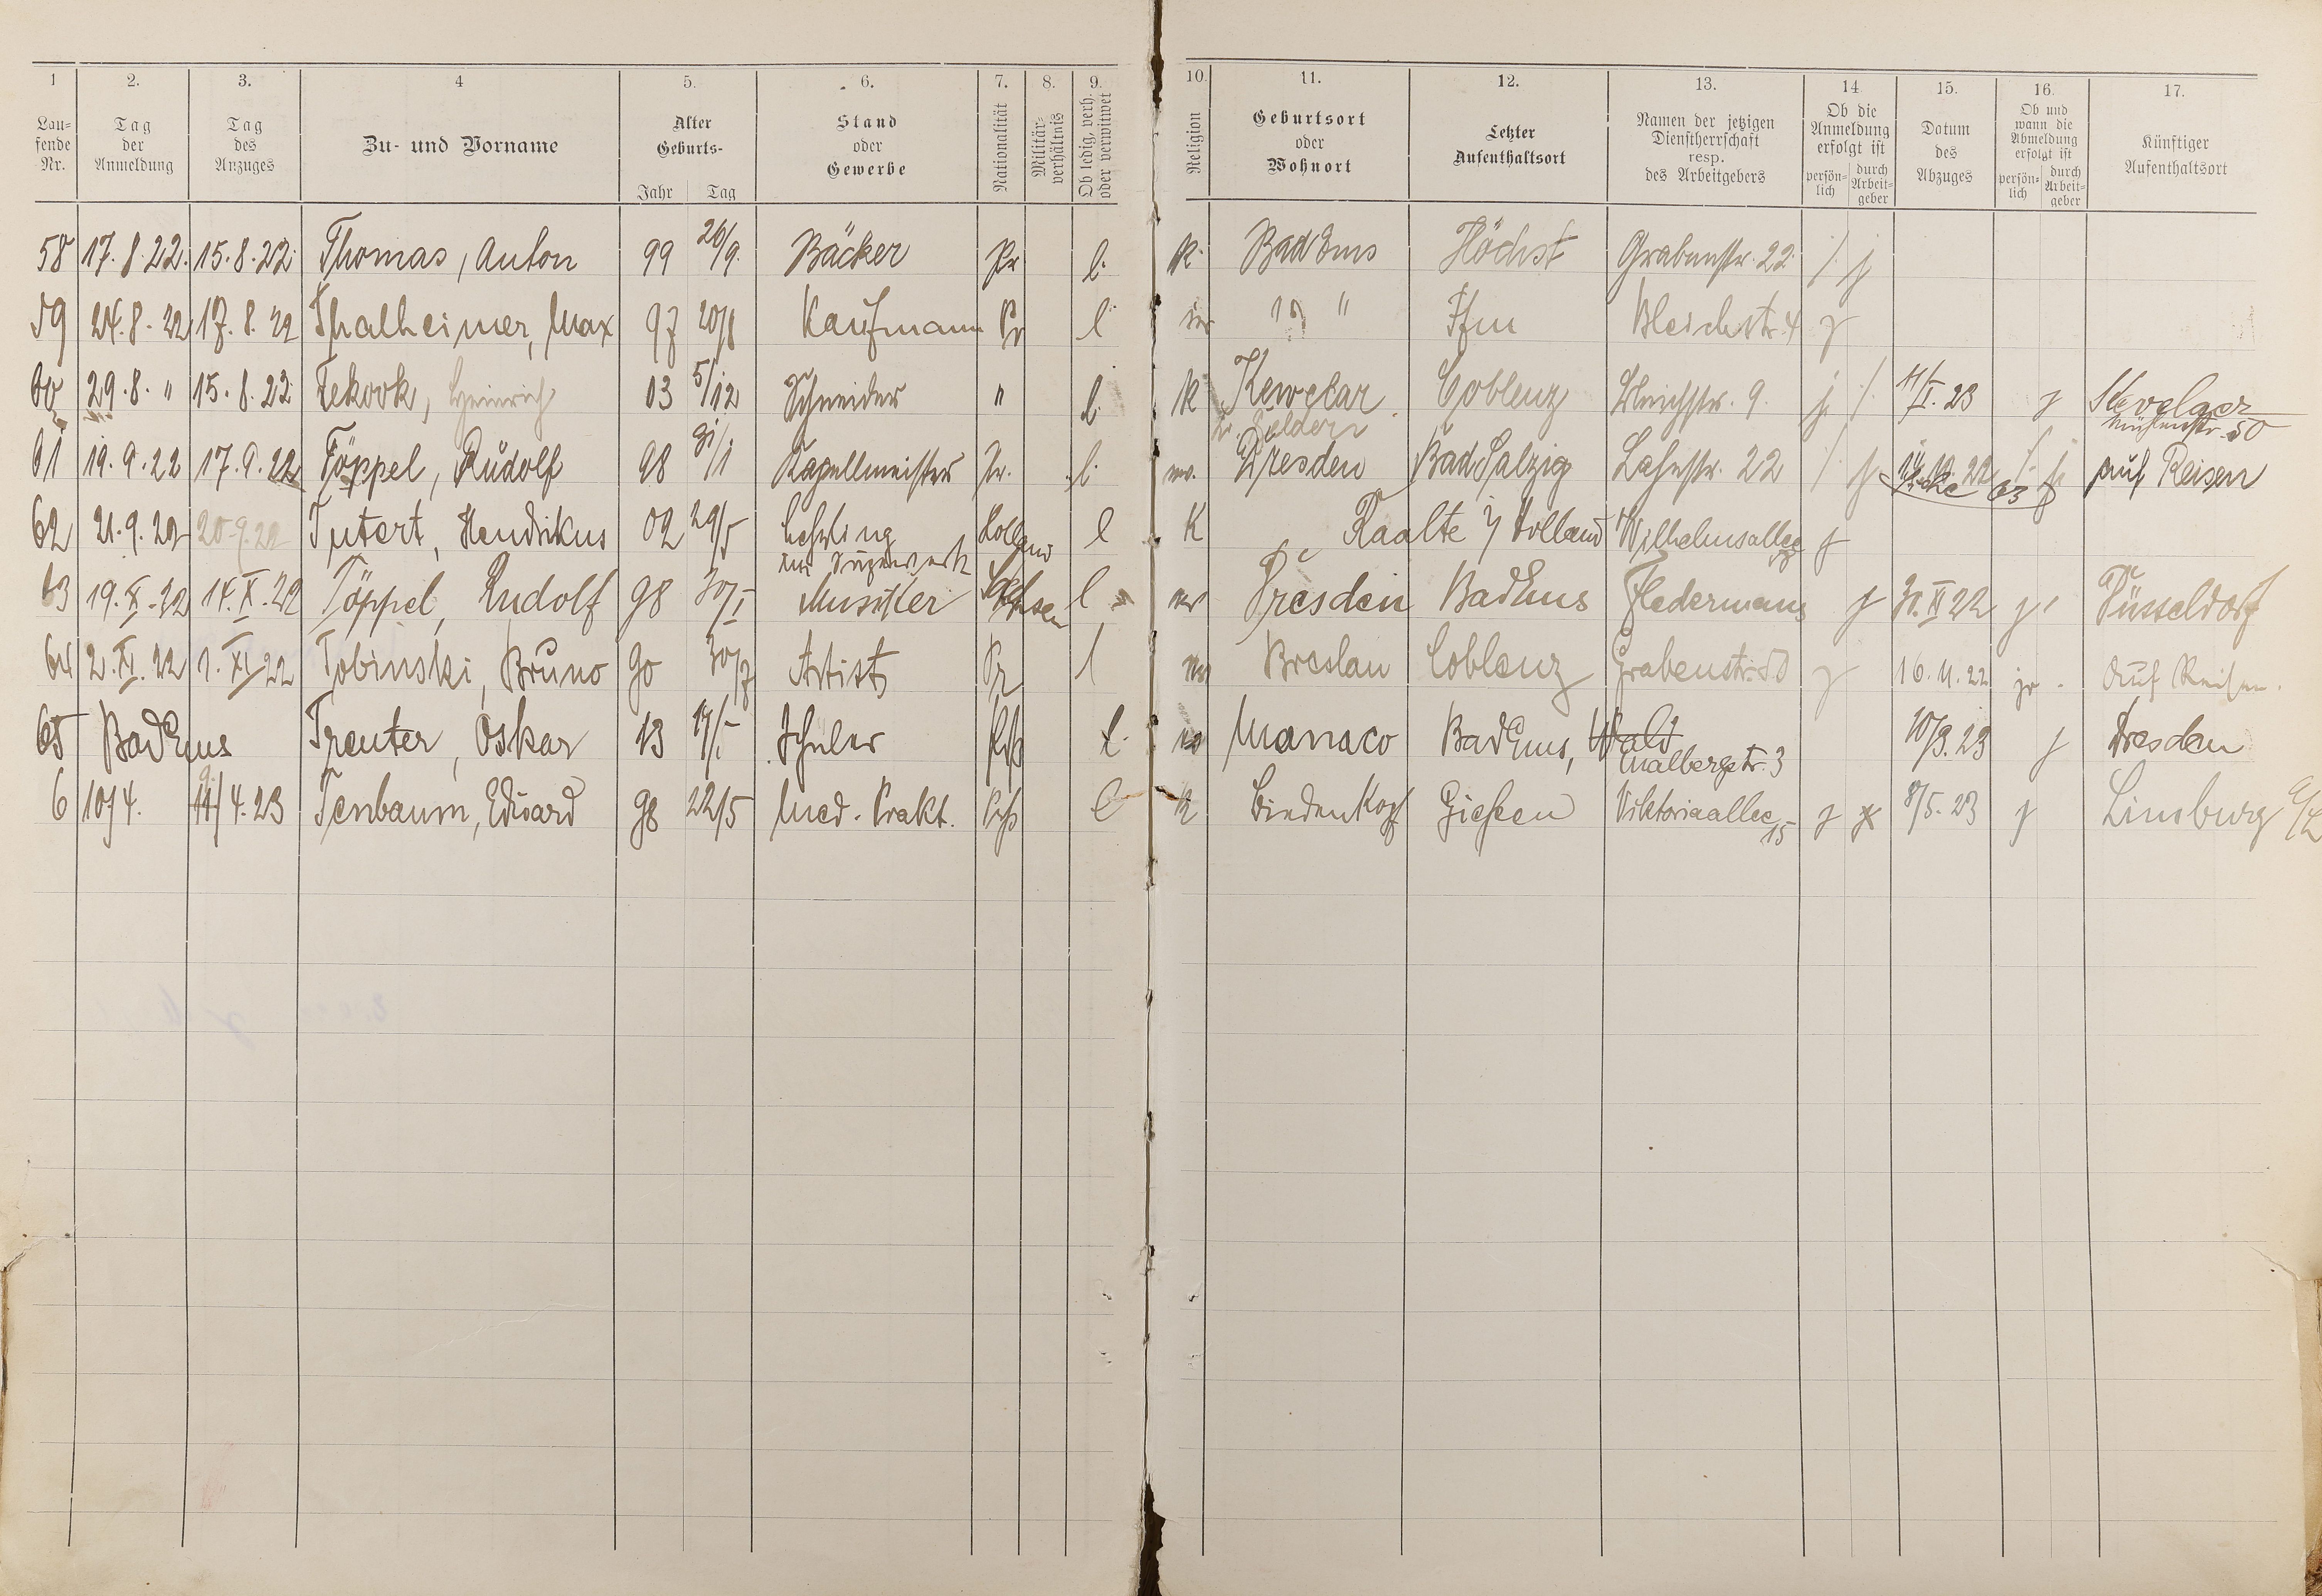 1 2. 3. 4 5. 6. 7. 8. 9. 10. 11. 12. 13. 14 15. 16. 17.
Lau-
fende
Nr.
Tag
der
Anmeldung
Tag
des
Anzuges
Zu- und Vorname
Alter
Geburts-
Jahr Tag
Stand
oder
Gewerbe
Nationalität
Militär-
verhältnis
Ob ledig, verh.
oder verwitwet
Religion
Geburtsort
oder
Wohnort
Letzter
Aufenthaltsort
Namen der jetzigen
Dienstherrschaft
resp.
des Arbeitgebers
Ob die
Anmeldung
erfolgt ist
persön-
lich
durch
Arbeit-
geber
Datum
des
Abzuges
Ob und
wann die
Abmeldung
erfolgt ist
persön-
lich
durch
Arbeit-
geber
Künftiger
Aufenthaltsort
58 17.8.22. 15.8.22. Thomas, Anton 99 26/9. Bäcker Pr l. K. Bad Ems Höchst Grabenstr. 22. /. j
59 24.8.22 17.8.22 Thalheimer, Max 97 20/8 Kaufmann Pr l " Ffm Bleichstr. 4 j
60 29.8. " 15.8.22 Tekook, Heinrich 03 5/12 Schneider " l. K Kewelar Coblenz Bleichstr. 9. j. /. 11/I.23 j Kevelaer
Geldern
61 19.9.22 17.9.22 Töppel, Rudolf 98 31/1 Kapellmeister Pr. l. ev. Dresden Bad Salzig Lahnstr. 22 /. j /. j auf Reisen
siehe 63
62 21.9.22 20.9.22 Tutert, Hendrikus 02 29/5 Lehrling Holland l K Raalte i/ Holland Wilhelmsallee j
63 19.X.22 14.X.22 Töppel, Rudolf 98 30/I Musiker Sachsen l ev Dresden Bad Ems Fledermaus j 30.XI 22 j Düsseldorf
64 2.XI.22 1.XI 22 Tobinski, Bruno 90 30/7 Artist Pr l ev Breslau Coblenz Grabenstr. 50 j 16.11.22 Auf Reisen.
65 Bad Ems Treuter, Oskar 13 Schüler l. ev Manaco Bad Ems, Wald
Malbergstr. 3 10/9.23 j Dresden
6 10/4. 11/4.23 Tenbaum, Eduard 98 22/5 Med. Prakt. l K Biedenkopf Giessen Viktoriaallee 15 j 8/5.23 j Limburg a/L